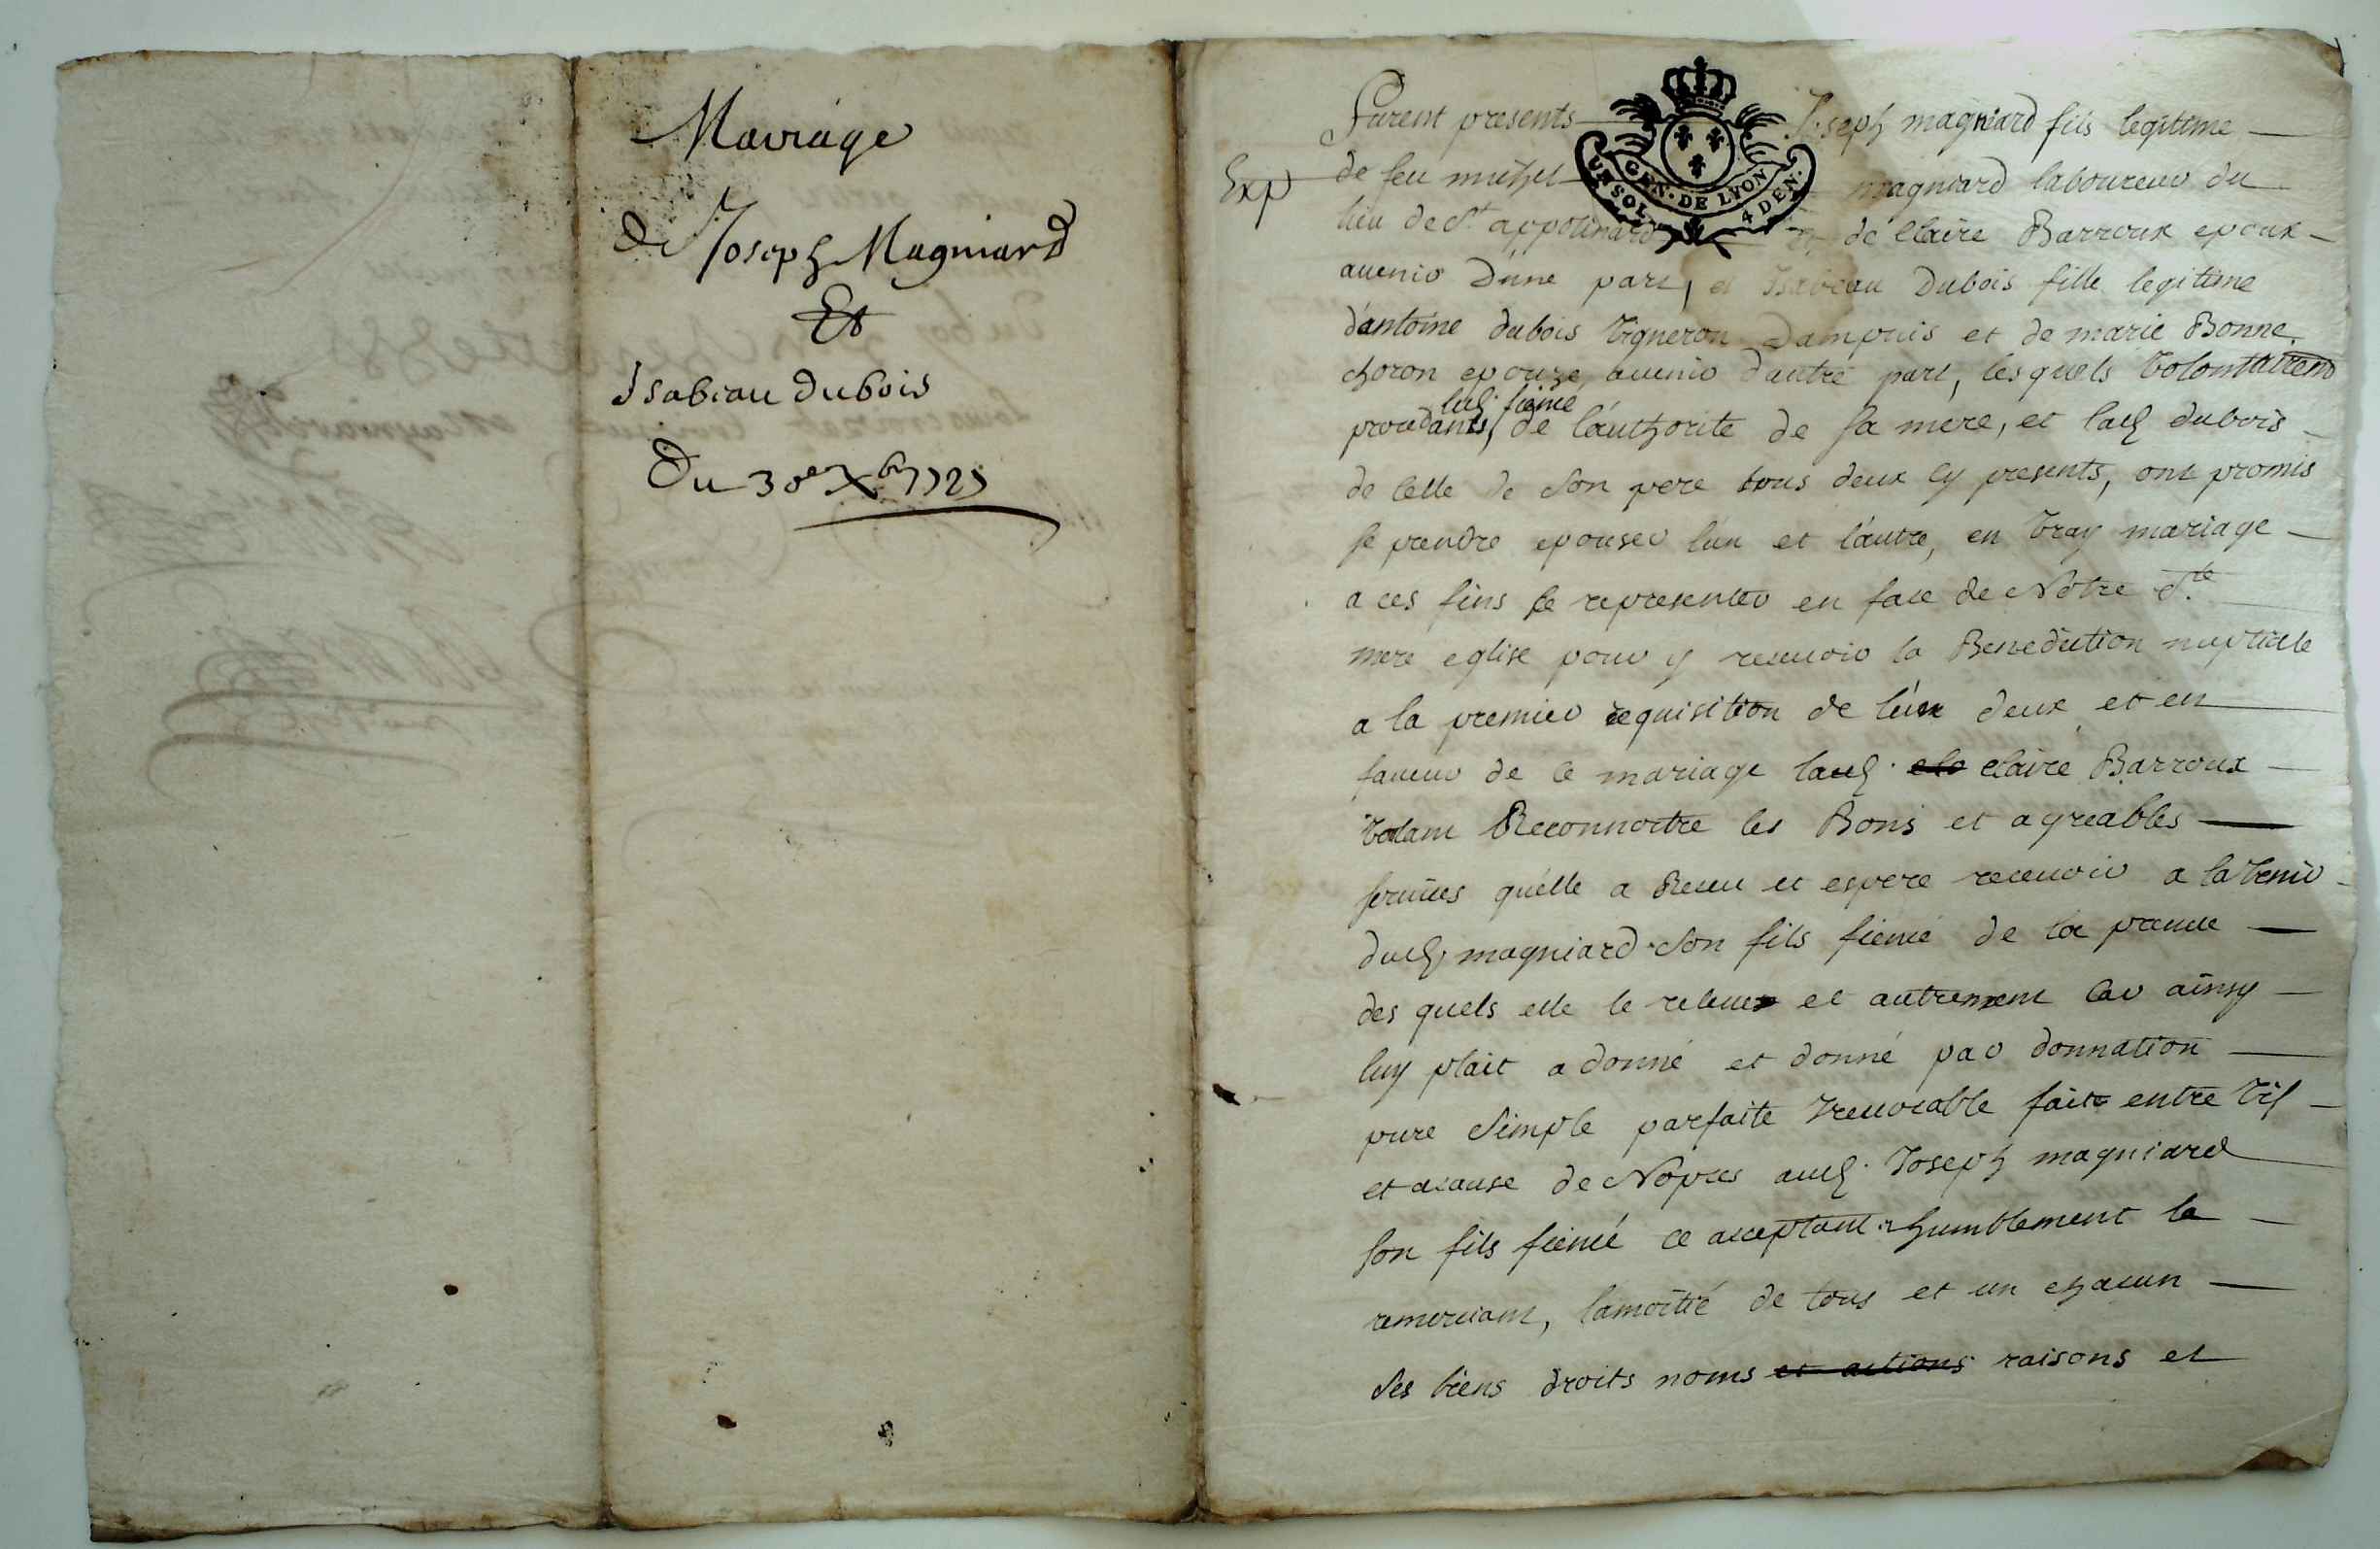 Mariage
De Joseph Magniard
Et
Isabeau Dubois
Du 30e Xbre 1727
Exp
Furent presents Joseph magniard fils legitime
de feu michel magniard laboureur du
lieu de St appolinard et de Claire Barroux epoux
auenir d'une part, et Isabeau Dubois fille legitime
d'antoine dubois Vigneron dampuis et de marie Bonne
choron epouze auenir d'autre part, les quels Volontairemt
procedants, led. fiencé de l'authorité de sa mere, et lad dubois
de celle de son pere tous deux cy presents, ont promis
se prendre epouser l'un et l'autre, en Vray mariage
a ces fins se representer en face de Notre Ste
mere eglise pour y receuoir la Benediction nuptiale
a la premier requisition de l'un deux et en
faueur de ce mariage lad. cla claire Barroux
Volant Reconnoitre les Bons et agreables
seruices qu'elle a Receu et espere receuoir a latvenir
dud. magniard son fils fiencé de la preuue
des quels elle le releue et autrement car ainsy
luy plait a donné et donné par donnation
pure simple parfaite Irreuocable faite entre Vifs
et acause de Nopces aud. Joseph magniard
son fils fiencé ce acceptant et humblement la
remerciant, lamoitié de tous et un chacun
ses biens droits noms et actions raisons et
GEN. DE LYON
UN SOL 4 DEN.